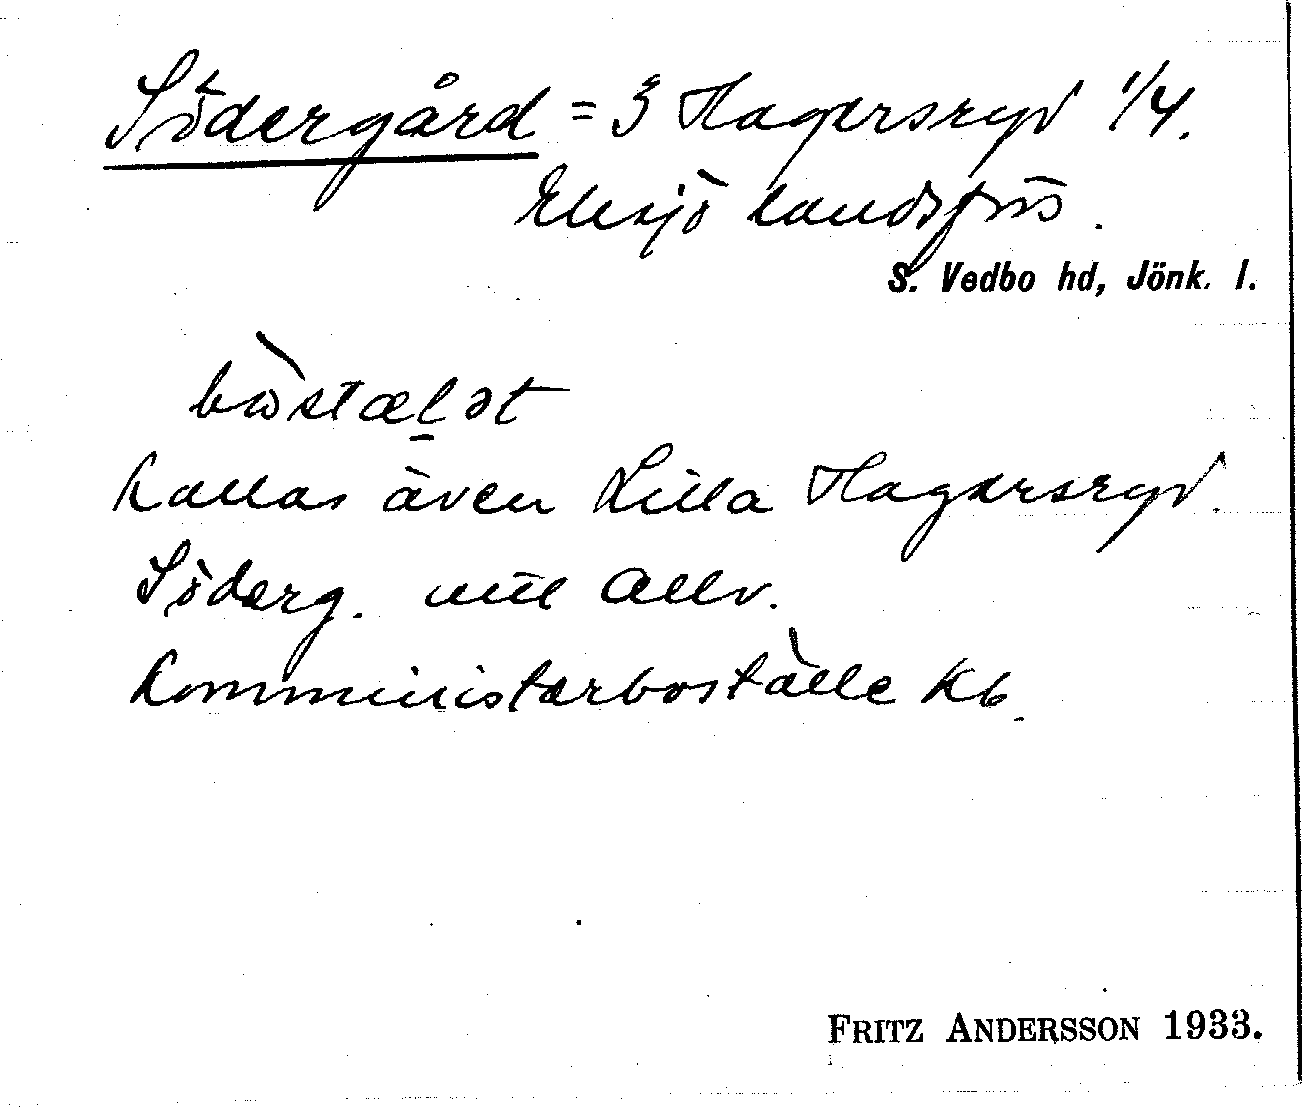 Södergård = 3 Hagersryd 1/4.
Eksjö landsförs.
S. Vedbo hd, Jönk. l.
bωstæl̠ət
Kallas även Lilla Hagersryd.
Söderg. mill allv.
Komministerboställe Kb.
FRITZ ANDERSSON 1933.